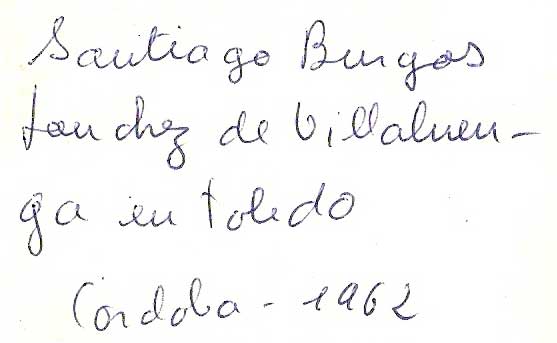 Santiago Burgos
Sanchez de Villaluen-
ga en Toledo
Cordoba - 1962